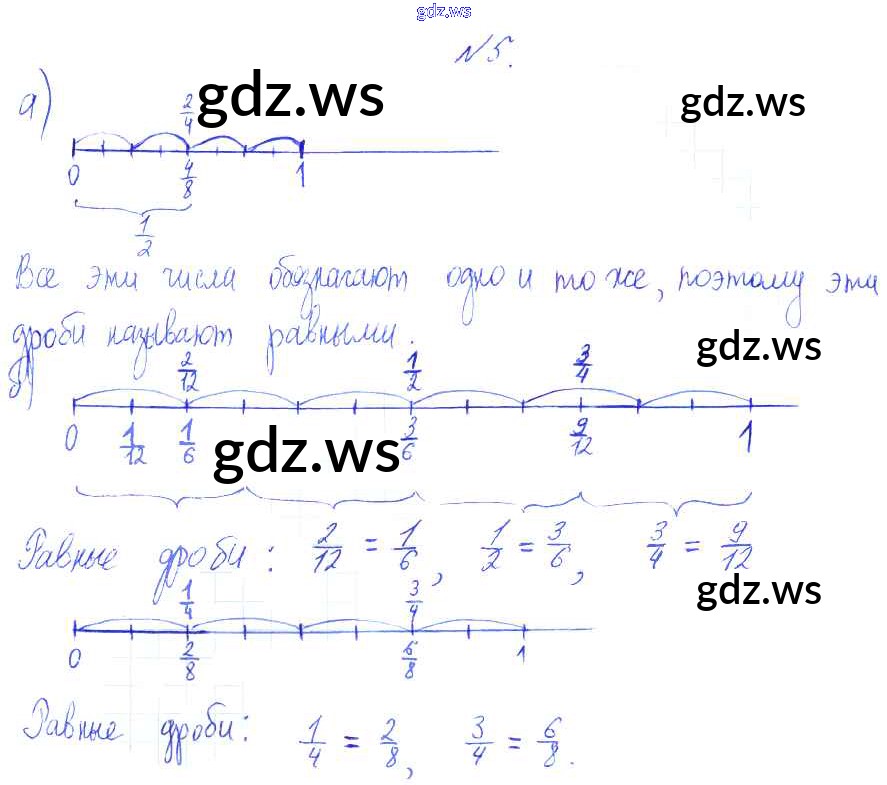 gdz.ws
№5.
а) 2/4 gdz.ws gdz.ws
0 4/8 1
1/2
Все эти числа обозначают одно и то же, поэтому эти
дроби называют равными.
gdz.ws
б) 2/12 1/2 3/4
0 1/12 1/6 3/6 9/12 1
gdz.ws
Равные дроби: 2/12 = 1/6, 1/2 = 3/6, 3/4 = 9/12
gdz.ws
1/4 3/4
0 2/8 6/8 1
Равные дроби: 1/4 = 2/8, 3/4 = 6/8.